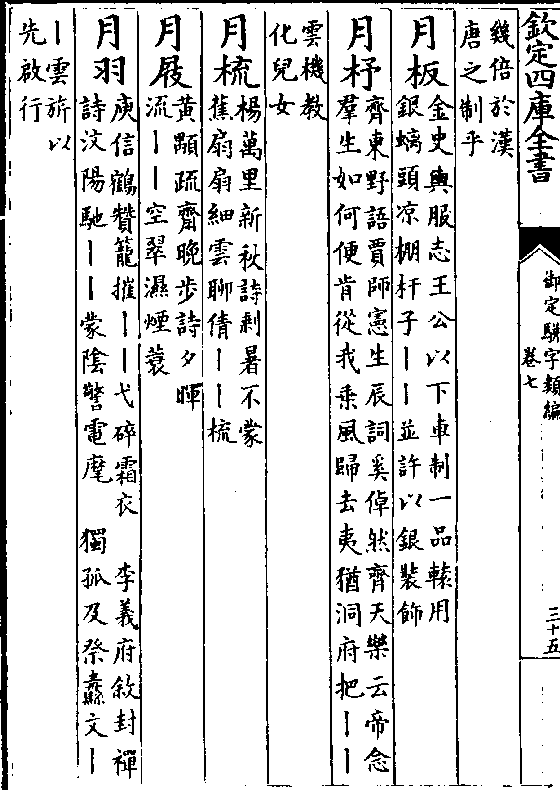 欽定四庫全書
御定駢字類編
卷七
三十五
幾倍於漢
唐之制乎
月板
金史輿服志王公以下車制一品轅用
銀螭頭凉棚杆子丨丨並許以銀裝飾
月杼
齊東野語賈師憲生辰詞奚倬然齊天樂云帝念
羣生如何便肯從我乗風歸去夷猶洞府把丨丨
雲機教
化兒女
月梳
楊萬里新秋詩剩暑不蒙
蕉扇扇細雲聊倩丨丨梳
月屐
黄顒疏齋晩步詩夕暉
流丨丨空翠濕煙蓑
月羽
庾信鶴贊籠摧丨丨弋碎霜衣　李義府敘封禪
詩汶陽馳丨丨蒙陰警電麾　獨孤及祭纛文丨
丨雲旂以
先啟行